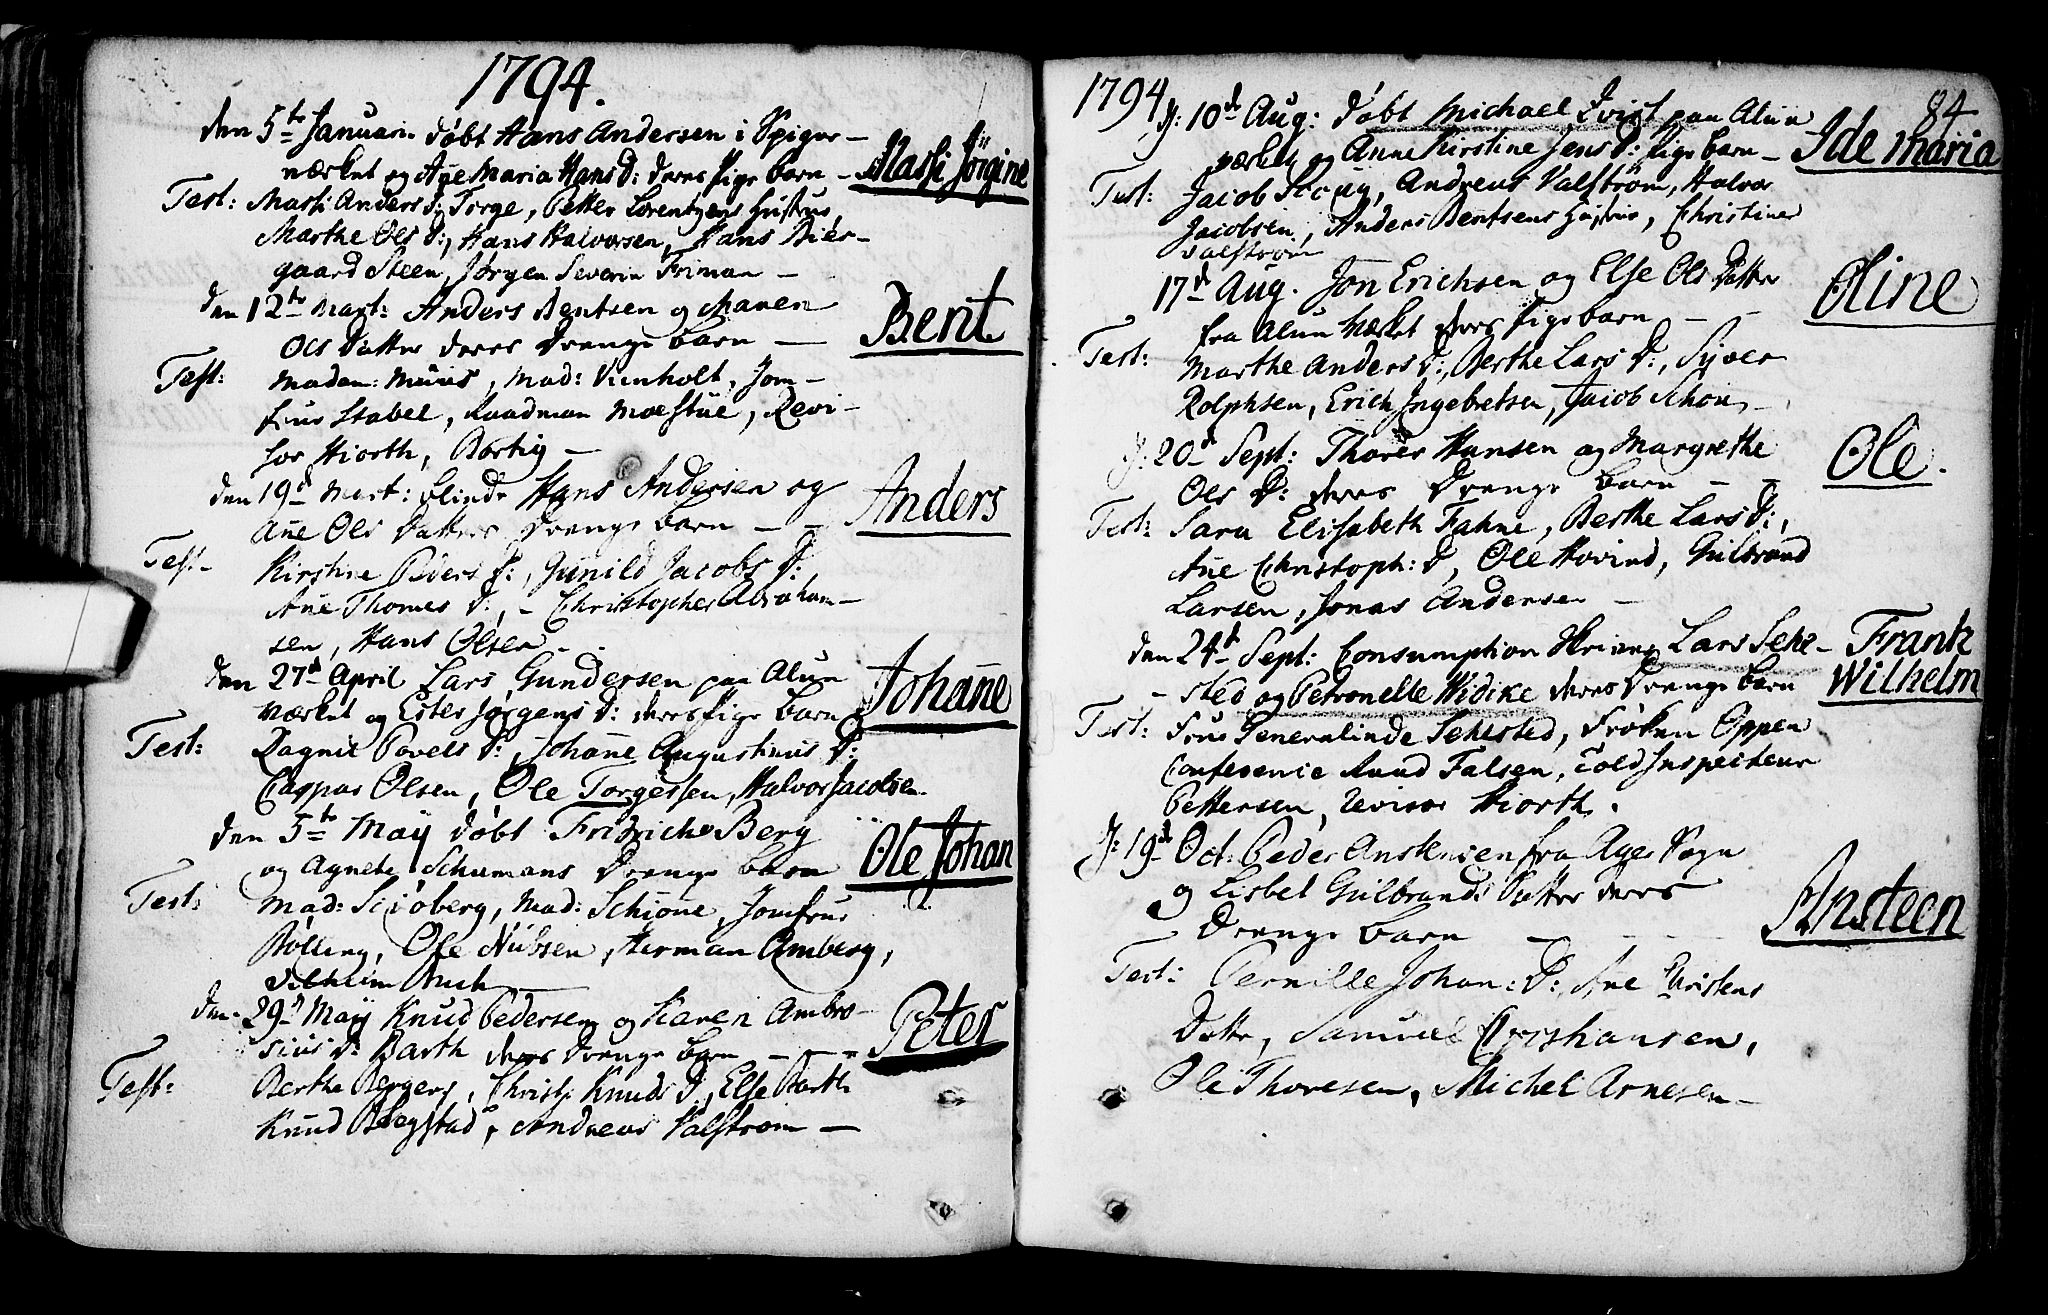 1794.
den 5te Januari døbt Hans Andersen i Spiger-
værket og Añe Maria Hans D: deres pige barn - Massi Jörgine
Test: Massi Anders D: Torge, Petter Lorentzens Hustrue,
Marthe Ols D:, Hans Halvorsen, Hans Bier-
gaard Steen, Jørgen Severin Friman -
den 12te Mart: Anders Bentsen og Maren
Ols Datter deres Drenge barn - Bent
Test: Madam: , Mad: Vienholt, Jom-
frue Stabel, Raadman Moestue, Revi-
sor Hiorth, Bortig -
den 19d Mart: blinde Hans Andersen og
Añe Ols Datters Drenge barn - - Anders
Test- Kirstine Peders D:, Gunild Jacobs D:
Añe Thomes D:, - Christopher Abraham-
sen, Hans Olsen -
den 27d April Lars Gundersen paa Alun
værket og Ester Jørgens D: deres pige barn Johañe
Test: Dagnil Povels D:, Johañe Augustinus D:
Caspar Olsen, Ole Torgessen, Halvor Jacobsen.
den 5te May døbt Fridrich Berg
og Agnete Schumans Drenge barn Ole Johan
Test: Mad: Siöberg, Mad: Schiøñe, Jomfrue
Bølling, Ole Nilssen, Herman Amberg,
Vilheim Buch -
den 29d May Knud Pedersen og Karen Ambro-
sius D: Barth deres Drenge barn - - - Peter
Test: Berthe Bergers, Christi Knuds D:, Else Barth
Knud Blegstad, Andreas Valstrøm -
1794 84
D: 10d Aug: døbt Michael Qvist paa Alun
værket og Anne Kirstine Jens D: Pige barn - Ide Maria
Test: Jacob , Andreas Valstrøm, Halvor
Jacobsen, Anders Bentsens Hustrue, Christine
Valstrøm
17d Aug. Jon Erichsen og Else Ols Datter
fra Alun værket deres Pige barn - - Oline
Test: Marthe Anders D:, Berthe Lars D:, Syver
Rolphsen, Erich Ingebretsen, Jacob Schøn -
D: 20d Sept: Thores Hansen og Margrethe
Ols D: deres Drenge barn - - Ole.
Test: Sara Elisabeth Fahne, Berthe Lars D:,
Añe Christoph: D, Ole Hovind, Gulbrand
Larsen, Jonas Andersen -
den 24d Sept: Consumption Skriver Lars Sehe- Frantz
- sted og Petronelle Widike deres Drenge barn Wilhelm
Test: Frue Generalinde Sehested, Frøken Oppen
Conference Raad Falsen, Told Inspecteur
Pettersen, Revisor Hiorth.
D: 19d Oct: Peder Anstensen fra Ager Sogn
og Lisbet Gulbrands Datter deres
Drenge barn - - - - Ansteen
Test: Pernille Johan: D: Añe Christens
Datter, Samuel Christiansen,
Ole Thoresen, Michel Arnesen -